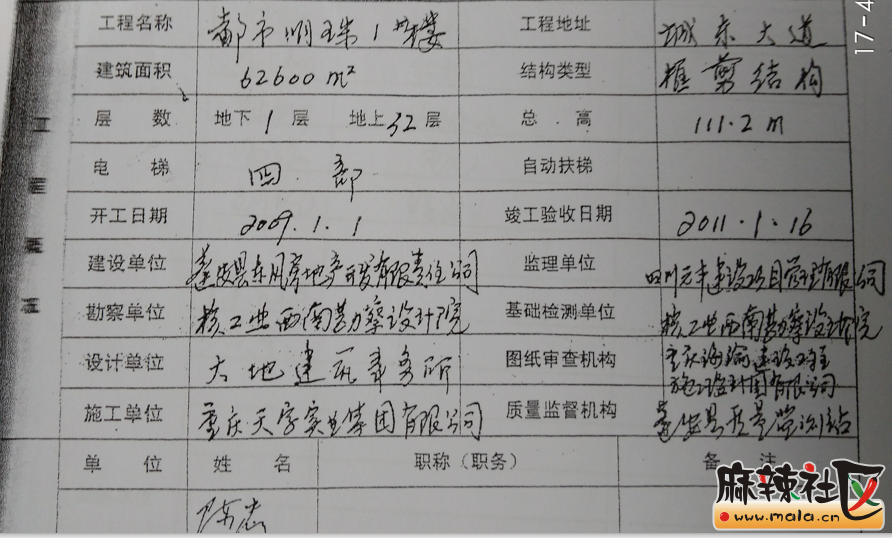 工程名称 都市明珠1#楼 工程地址 城东大道
建筑面积 62600m² 结构类型 框剪结构
层数 地下1层 地上32层 总高 111.2m
电梯 四部 自动扶梯
开工日期 2009.1.1 竣工验收日期 2011.1.16
建设单位 蓬安县东风房地产开发有限责任公司 监理单位 四川元丰建设项目管理有限公司
勘察单位 核工业西南勘察设计院 基础检测单位 核工业西南勘察设计院
设计单位 大地建筑事务所 图纸审查机构 重庆渝建设工程
施工图设计有限公司
施工单位 重庆天字实业集团有限公司 质量监督机构 蓬安县质量监测站
工程概况
单位 姓名 职称（职务） 备注
陈志
17-4
麻辣社区
www.mala.cn